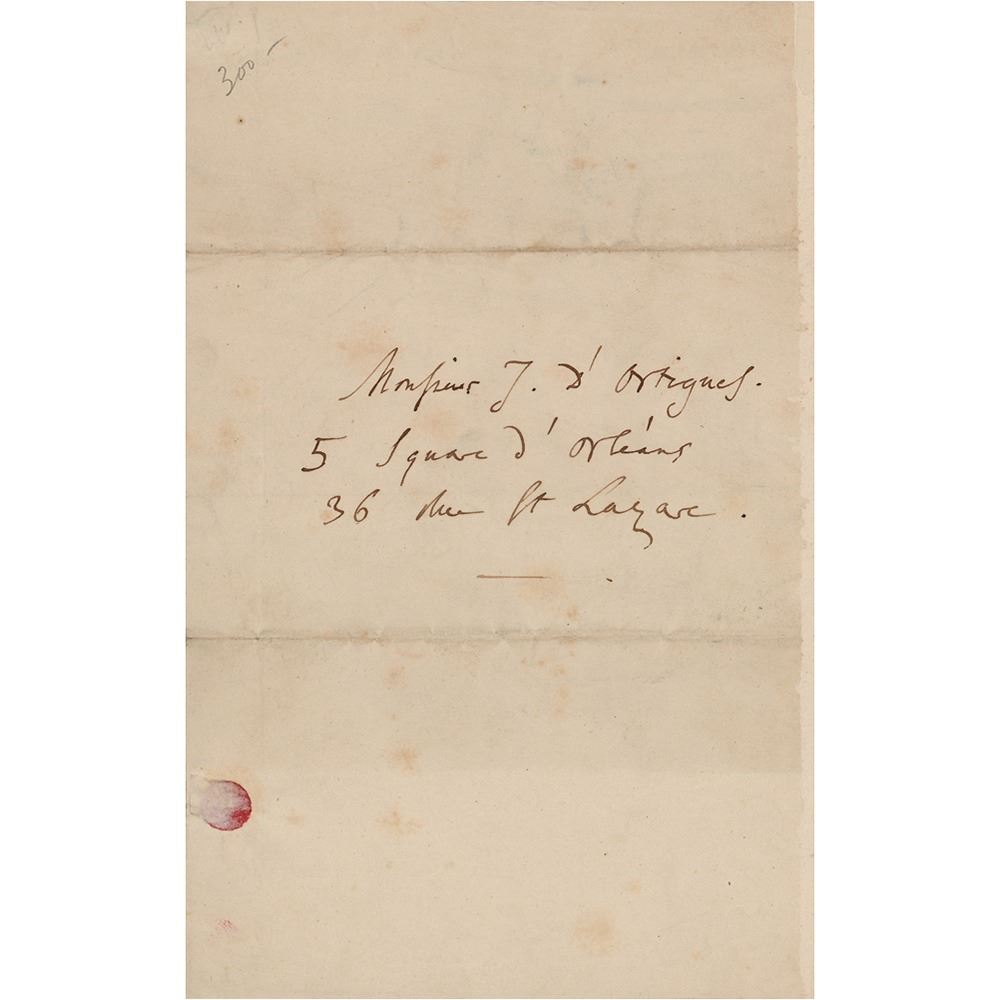 300-
Monsieur J. D'Ortigues.
5 Square d'Orléans
36 Rue St Lazare.